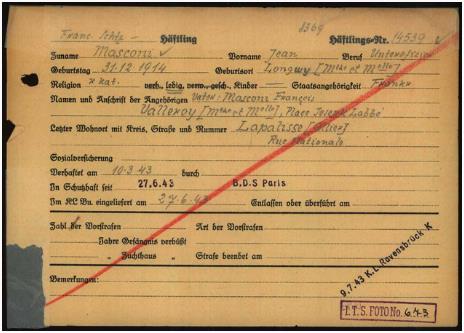 1369
Franz. Schtz. Häftling Häftlings-Nr. 14539
Zuname Masconi Vorname Jean Beruf Unteroffizier
Geburtstag 31.12.1914 Geburtsort Longwy [Mthe et Mlle]
Religion r kat. verh., ledig, verw., gesch., Kinder Staatsangehörigkeit Frankr
Namen und Anschrift der Angehörigen Vater: Masconi François
Valleroy [Mthe et Mlle], Place Joseph Labbé
Letzter Wohnort mit Kreis, Straße und Nummer Lapalisse
Rue Nationale
Sozialversicherung
Verhaftet am 10.3.43 durch
In Schutzhaft seit 27.6.43 B.D.S Paris
Im KL Bu. eingeliefert am 27.6.43 Entlassen oder überführt am
Zahl der Vorstrafen Art der Vorstrafen
Jahre Gefängnis verbüßt
" Zuchthaus " Strafe beendet am
Bemerkungen:
9.7.43 K.L. Ravensbrück K
I.T.S. FOTO No. 643